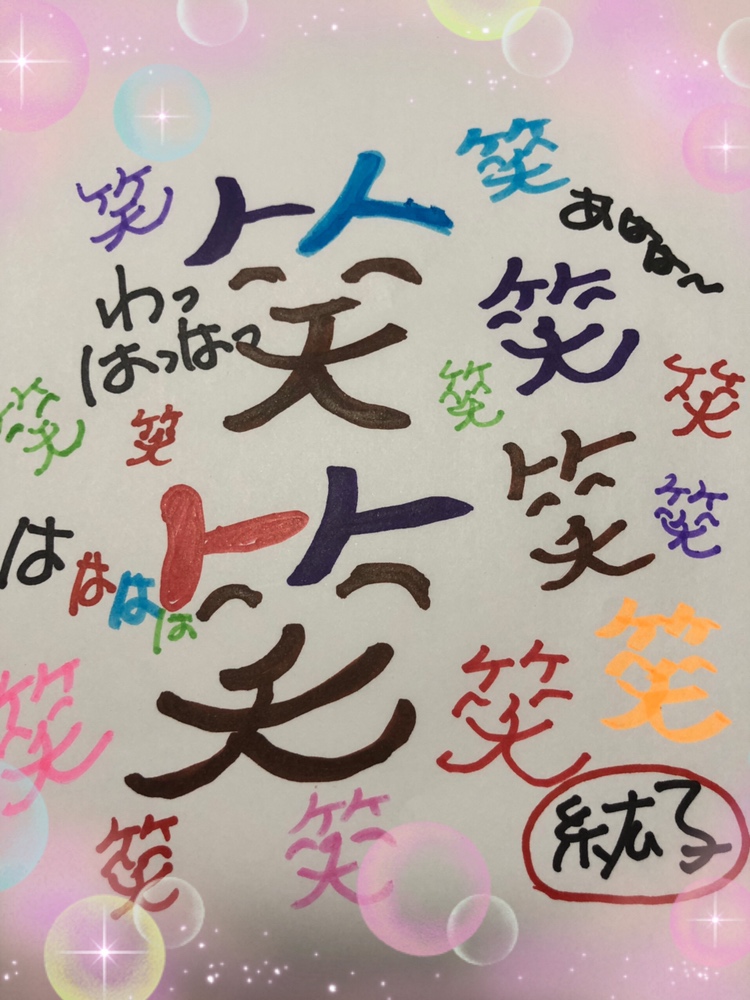 笑
笑
笑
あはは〜
わっ
はっはっ
笑
笑
笑
笑
笑
笑
笑
はははは
笑
笑
笑
笑
笑
笑
紘子